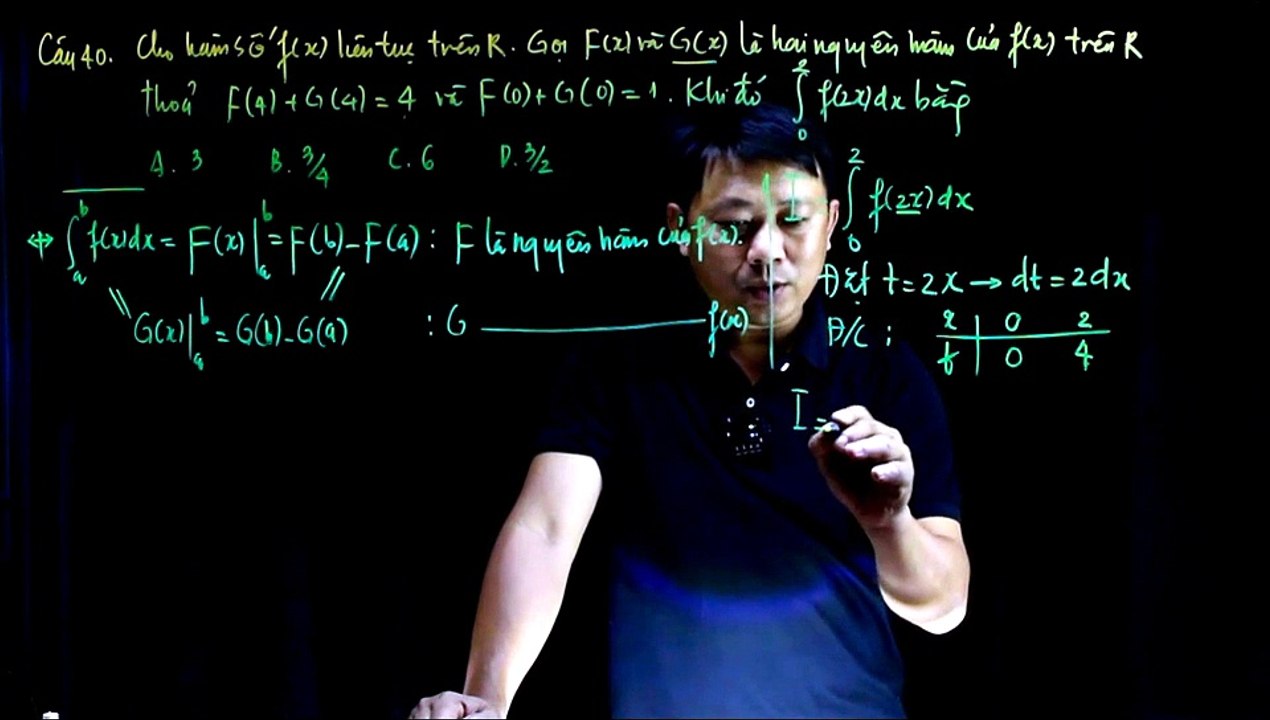 Câu 40. Cho hàm số f(x) liên tục trên R. Gọi F(x) và G(x) là hai nguyên hàm của f(x) trên R
thoả F(4) + G(4) = 4 và F(0) + G(0) = 1. Khi đó ∫₀² f(2x)dx bằng
A. 3 B. 3/4 C. 6 D. 3/2
⇔ ∫ₐᵇ f(x)dx = F(x)|ₐᵇ = F(b) - F(a) : F là nguyên hàm của f(x).
G(x)|ₐᵇ = G(b) - G(a) : G ———— f(x)
I ∫₀² f(2x)dx
Đặt t = 2x → dt = 2dx
Đ/C : x | 0 2
t | 0 4
I =